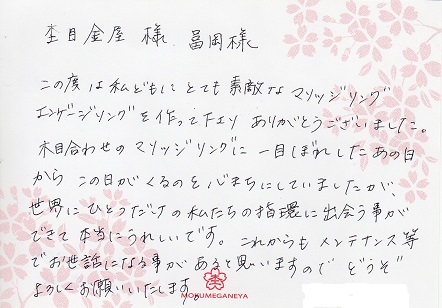 杢目金屋 様 冨岡様
この度は私どもに とても 素敵な マリッジリング
エンゲージリングを作って下さり ありがとうございました。
木目合わせの マリッジリングに 一目ぼれしたあの日
から この日がくるのを 心まちにしていましたが、
世界にひとつだけの 私たちの指環に出会う事が
できて本当にうれしいです。 これからも メンテナンス等
でお世話になる事が あると思いますので どうぞ
よろしくお願いいたします。
MOKUMEGANEYA